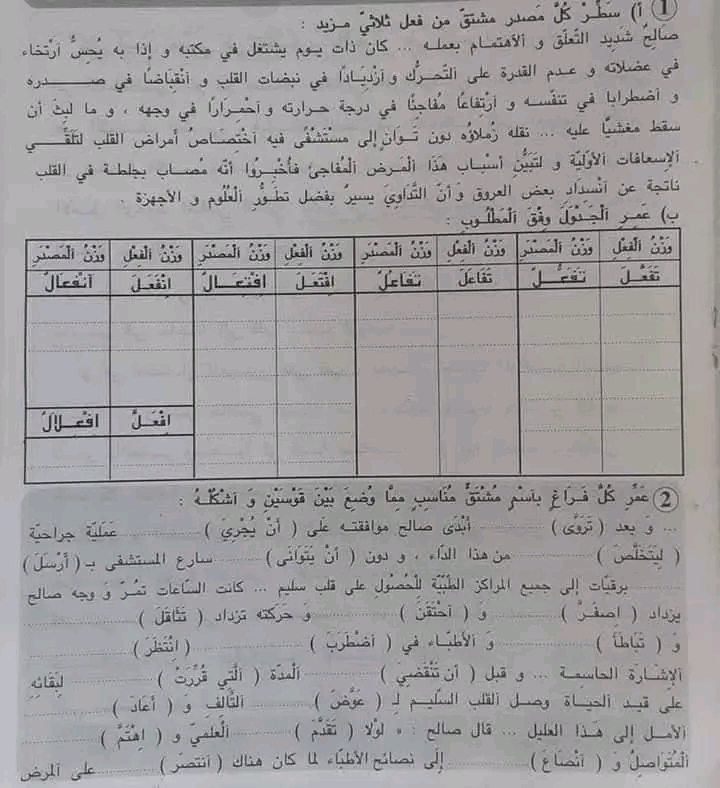 1 أ) سَطِّرْ كُلَّ مَصدر مشتقّ من فعل ثلاثيّ مـزيد :
صالحٌ شديد التَّعلّق و الاهتمام بعمله ... كان ذات يـوم يشتغل في مكتبه و إذا به يُحِسُّ اَرْتخاء
في عضلاته و عدم القدرة على التَحرُّك و اَزْدِيَادًا في نبضات القلب و اَنْقِبَاضًا في صـــدره
و اَضطرابا في تنفّسـه و اَرْتِفاعًا مُفاجئًا في درجة حرارته و اَحْمِرَارًا في وجهه ، و ما لبِثَ أن
سقط مغشيًّا عليه ... نقله زُملاؤه دون تَوَانٍ إلى مسْتَشْفًى فيه اَخْتِصَاصُ أمراض القلب لتَلَقِّـــي
الإسعافات الأوّليّة و لتَبَيُّنِ أسْبَابِ هَذَا الْمَـرض الْمُفاجئ فَأُخْبِـرُوا أنَّه مُصـاب بِجلطـة في القلب
ناتجة عن اَنْسدادِ بعض العروق وَ أنّ التَّدَاوِيَ يسيرٌ بفضل تطَوُّرِ الْعُلُوم و الأجهزة .
ب) عَمِّرِ الْجَدْوَلَ وِفْقَ الْمَطْلُوبِ :
وَزْنُ الْفِعْلِ وَزْنُ الْمَصْدَرِ وَزْنُ الْفِعْلِ وَزْنُ الْمَصْدَرِ وَزْنُ الْفِعْلِ وَزْنُ الْمَصْدَرِ وَزْنُ الْفِعْلِ وَزْنُ الْمَصْدَرِ
تَفَعَّلَ تَفَعُّـــلٌ تَفَاعَلَ تَفَاعُلٌ اِفْتَعَلَ اِفْتِعَــالٌ اِنْفَعَلَ اَنْفِعَالٌ
اِفْعَلَّ اِفْعِلَالٌ
2 عَمِّرْ كُلَّ فَـرَاغٍ بِاَسْمٍ مُشْتَقٍّ مُنَاسِبٍ مِمَّا وُضِعَ بَيْنَ قَوْسَيْنِ وَ اَشْكُلْهُ :
... وَ بعد ( تَرَوَّى ) ............ أَبْدَى صالح موافقتـه عَلَى ( أَنْ يُجْرِيَ ) ............ عَمَليّة جراحيّة
( لِيَتَخَلَّصَ ) ............ من هذا الدَّاء ، و دون ( أَنْ يَتَوَانَى ) ............ سارع المستشفى بـ ( أَرْسَلَ )
............ برقيّات إلى جميع المراكز الطبّيّة لِلْحُصُولِ على قلب سليم ... كانت السّاعات تمُـرّ وَ وجه صالح
يزداد ( اِصفَرَّ ) ............ وَ ( اَحْتَقَنَ ) ............ وَ حَرَكته تزداد ( تَثَاقَلَ ) ............
وَ ( تَبَاطَأَ ) ............ وَ الأَطبَّـاء في ( اَضْطَرَبَ ) ............ ( اَنْتَظَرَ ) ............
الإشارة الحاسمـة ... و قبل ( أن تَنْقَضِيَ ) ............ الْمدّة ( الَّتي قُرِّرَتْ ) ............ لِبَقَائِهِ
على قيـد الحيـاة وصـل القلب السّليـم لِـ ( عَوَّضَ ) ............ التَّالِفِ و ( أَعَادَ ) ............
الأمـل إلى هـذا العليل ... قال صالح : « لَوْلَا ( تَقَدَّمَ ) ............ الْعِلْمِيّ وَ ( اِهْتَمَّ ) ............
الْمُتَوَاصِلُ وَ ( اَنْصَاعَ ) ............ إلَى نَصائح الأَطبّاء لما كان هناك ( اَنتصرَ ) ............ على الْمرض